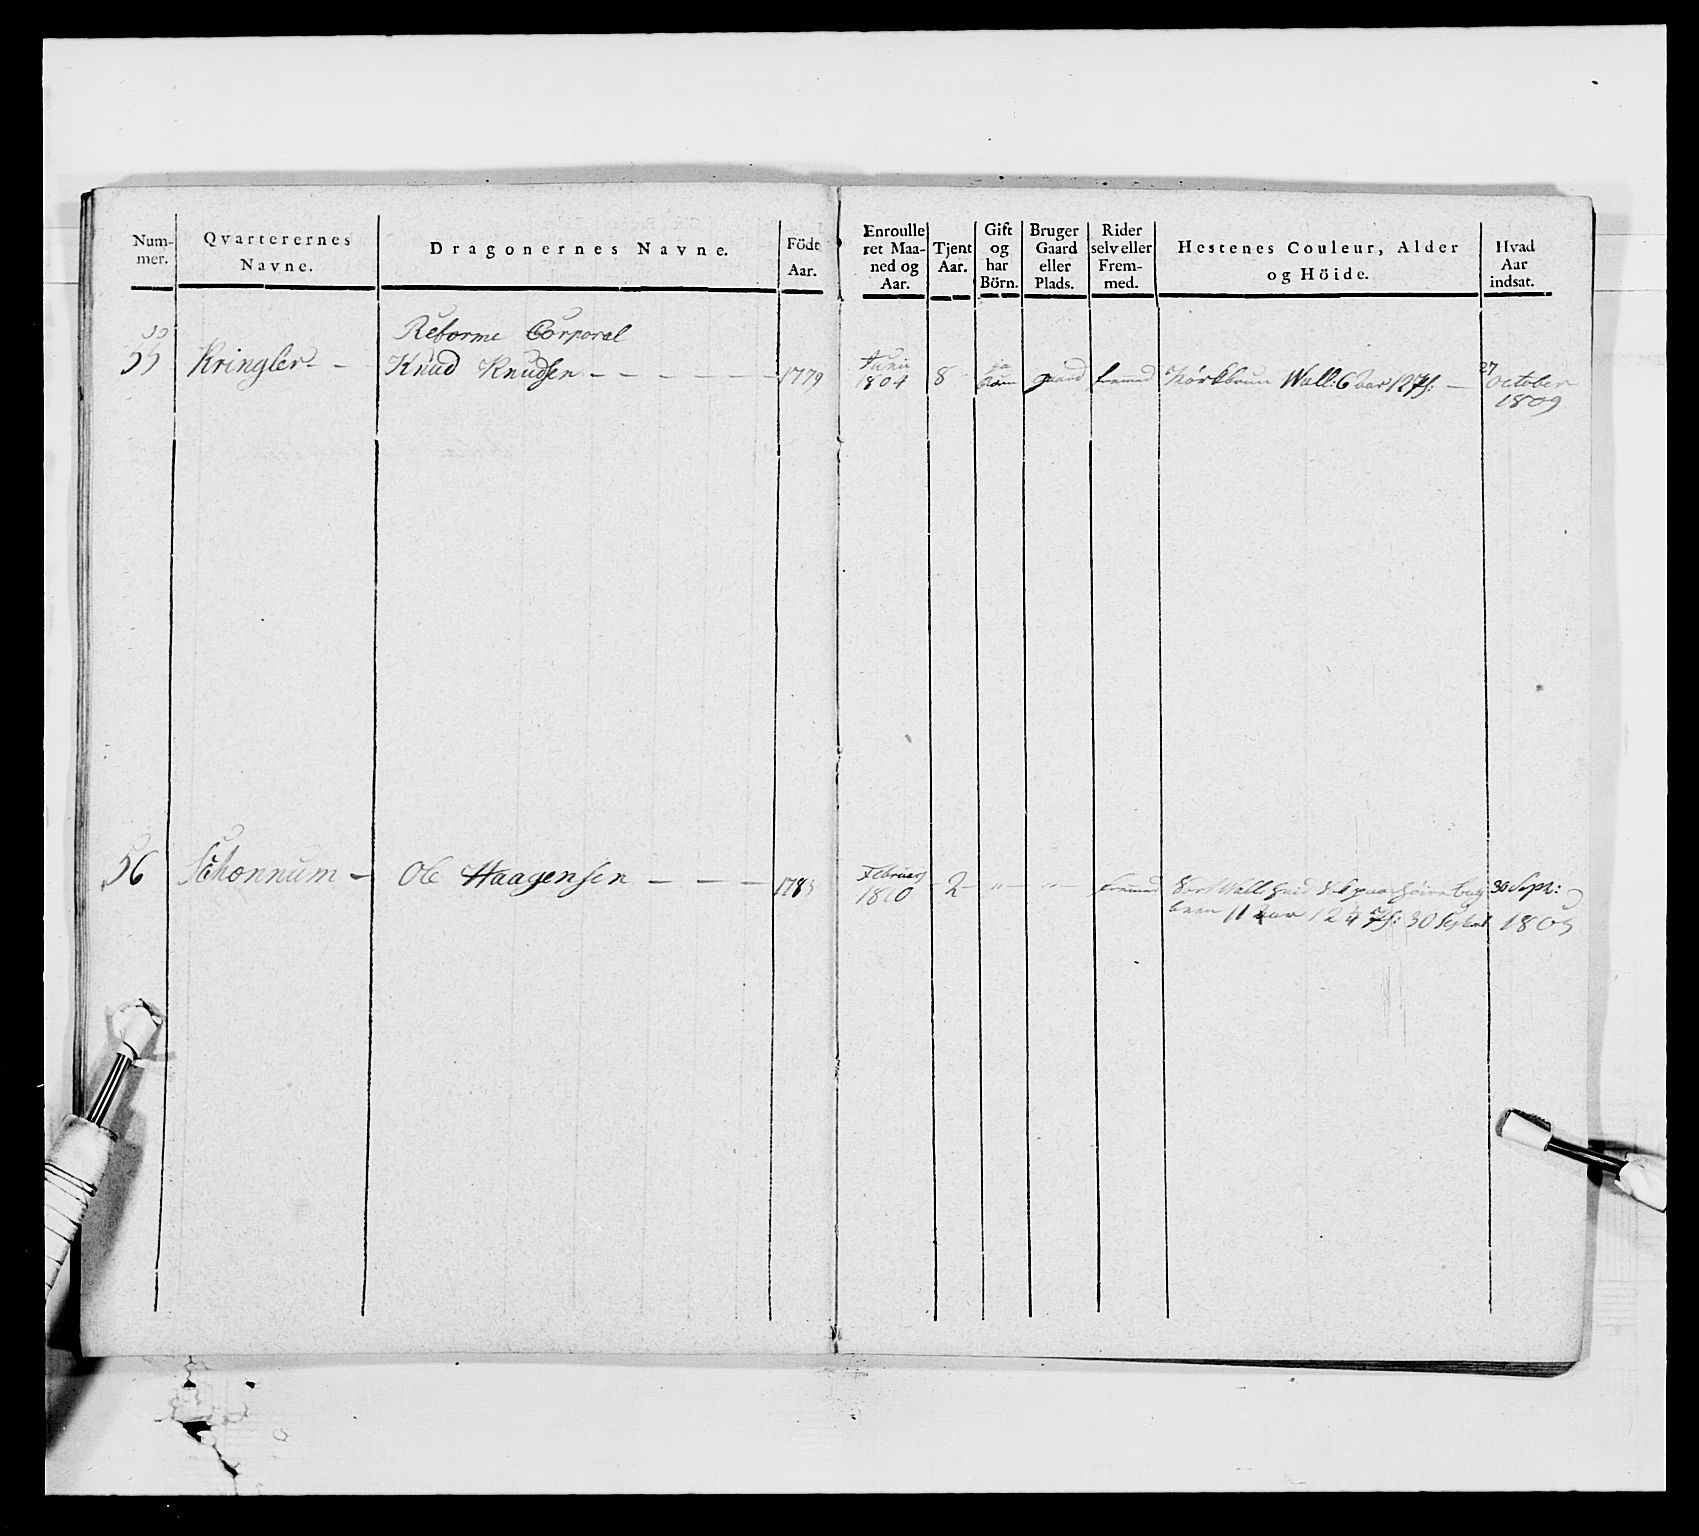 Nummer.
Qvarterernes Navne.
Dragonernes Navne.
Födt Aar.
Enroulleret Maaned og Aar.
Tjent Aar.
Gift og har Börn.
Bruger Gaard eller Plads.
Rider selv eller Fremmed.
Hestenes Couleur, Alder og Höide.
Hvad Aar indsat.
Reforme Corporal
55 Kringler - - Knud Knudsen - - - - - - 1779 Junii 1804 8 ja gaard fremmed Mörkbrun Wall: 6 Aar 12 — 27 October 1809
56 Schonnum - Ole Haagensen - - - - 1783 Februar 1810 - 2 - „ - „ - fremmed Sort Wall: hvid høire bag 30 Sept:
been 11 Aar 12 4 30 Septemb 1805